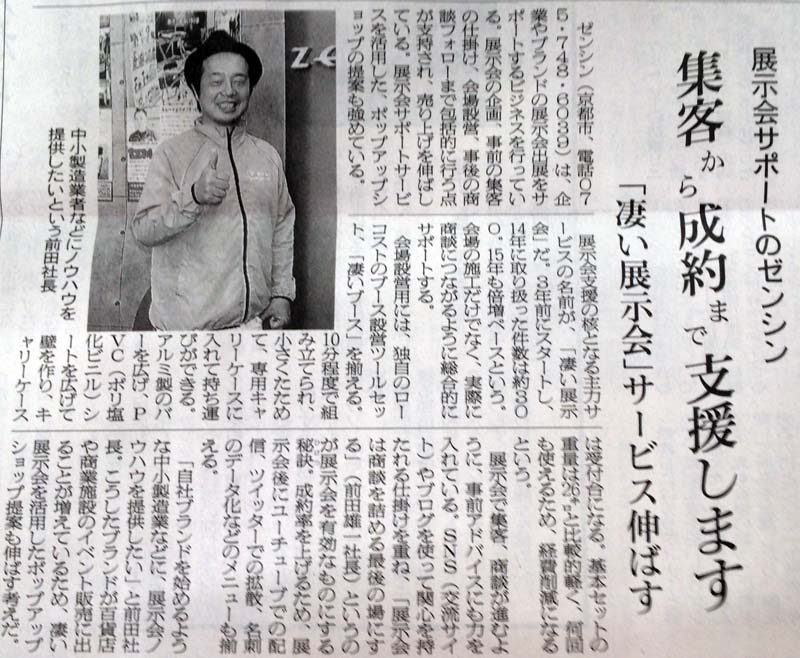 展示会サポートのゼンシン
集客から成約まで支援します
「凄い展示会」サービス伸ばす
ゼンシン（京都市、電話０７
５・７４８・６０３９）は、企
業やブランドの展示会出展をサ
ポートするビジネスを行ってい
る。展示会の企画、事前の集客
の仕掛け、会場設営、事後の商
談フォローまで包括的に行う点
が支持され、売り上げを伸ばし
ている。展示会サポートサービ
スを活用した、ポップアップシ
ョップの提案も強めている。
中小製造業者などにノウハウを
提供したいという前田社長
展示会支援の核となる主力サ
ービスの名前が、「凄い展示
会」だ。３年前にスタートし、
14年に取り扱った件数は約３０
０。15年も倍増ペースという。
会場の施工だけでなく、実際に
商談につながるように総合的に
サポートする。
会場設営用には、独自のロー
コストのブース設営ツールセッ
ト、「凄いブース」を揃える。
10分程度で組
み立てられ、
小さくたため
て、専用キャ
リーケースに
入れて持ち運
びができる。
アルミ製のバ
ーを広げ、Ｐ
ＶＣ（ポリ塩
化ビニル）シ
ートを広げて
壁を作り、キ
ャリーケース
は受付台になる。基本セットの
重量は26㌔と比較的軽く、何回
も使えるため、経費削減になる
という。
展示会で集客、商談が進むよ
うに、事前アドバイスにも力を
入れている。ＳＮＳ（交流サイ
ト）やブログを使って関心を持
たれる仕掛けを重ね、「展示会
は商談を詰める最後の場にす
る」（前田雄一社長）というの
が展示会を有効なものにする
秘訣。成約率を上げるため、展
示会後にユーチューブでの配
信、ツイッターでの拡散、名刺
のデータ化などのメニューも揃
える。
「自社ブランドを始めるよう
な中小製造業などに、展示会ノ
ウハウを提供したい」と前田社
長。こうしたブランドが百貨店
や商業施設のイベント販売に出
ることが増えているため、凄い
展示会を活用したポップアップ
ショップ提案も伸ばす考えだ。